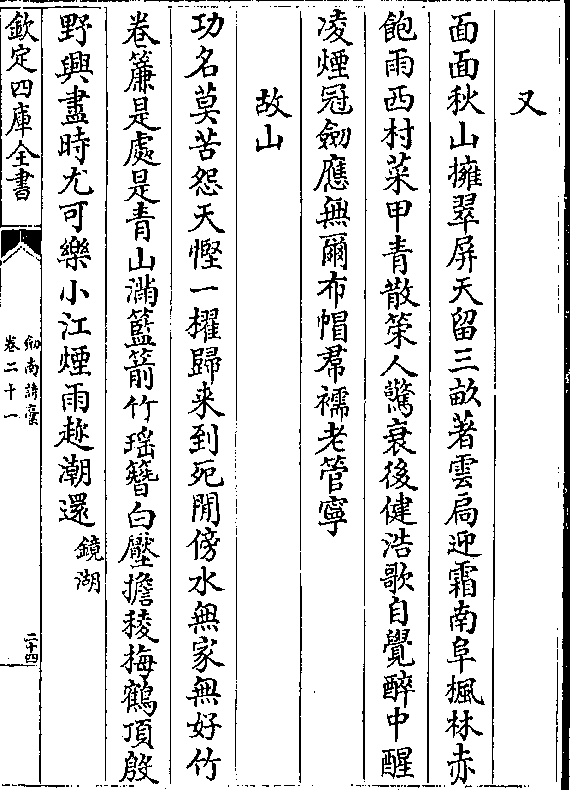 又
面面秋山擁翠屏天留三畝著雲扃迎霜南阜楓林赤
飽雨西村菜甲青散策人驚衰後健浩歌自覺醉中醒
凌煙冠劒應無爾布帽帬襦老管寧
故山
功名莫苦怨天慳一櫂歸来到死閒傍水無家無好竹
卷簾是處是青山滿籃箭竹瑶簪白壓擔稜梅鶴頂殷
野興盡時尤可樂小江煙雨趂潮還鏡湖
欽定四庫全書
劒南詩稾
卷二十一
二十四